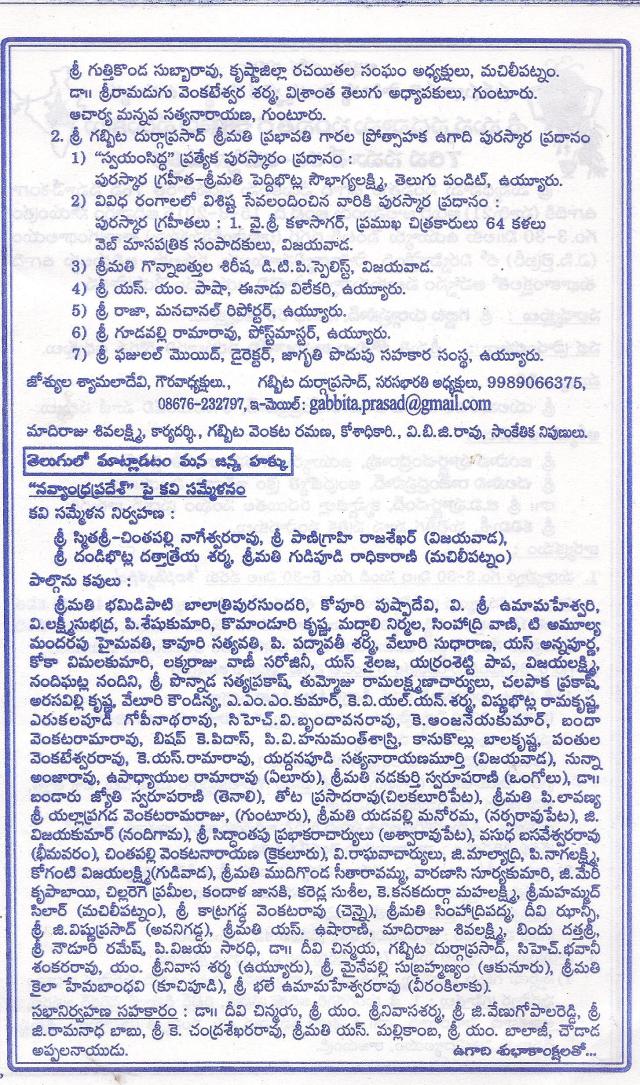 శ్రీ గుత్తికొండ సుబ్బారావు, కృష్ణాజిల్లా రచయితల సంఘం అధ్యక్షులు, మచిలీపట్నం.
డా॥ శ్రీరామడుగు వెంకటేశ్వర శర్మ, విశ్రాంత తెలుగు అధ్యాపకులు, గుంటూరు.
ఆచార్య మన్నవ సత్యనారాయణ, గుంటూరు.
2. శ్రీ గబ్బిట దుర్గాప్రసాద్ శ్రీమతి ప్రభావతి గారల ప్రోత్సాహక ఉగాది పురస్కార ప్రదానం
1) "స్వయంసిద్ధ" ప్రత్యేక పురస్కారం ప్రదానం :
పురస్కార గ్రహీత-శ్రీమతి పెద్దిభొట్ల సౌభాగ్యలక్ష్మి, తెలుగు పండిట్, ఉయ్యూరు.
2) వివిధ రంగాలలో విశిష్ట సేవలందించిన వారికి పురస్కార ప్రదానం :
పురస్కార గ్రహీతలు : 1. వై.శ్రీ కళాసాగర్, ప్రముఖ చిత్రకారులు 64 కళలు
వెబ్ మాసపత్రిక సంపాదకులు, విజయవాడ.
3) శ్రీమతి గొన్నాబత్తుల శిరీష, డి.టి.పి.స్పెలిస్ట్, విజయవాడ.
4) శ్రీ యస్. యం. పాషా, ఈనాడు విలేకరి, ఉయ్యూరు.
5) శ్రీ రాజా, మనచానల్ రిపోర్టర్, ఉయ్యూరు.
6) శ్రీ గూడవల్లి రామారావు, పోస్ట్‌మాస్టర్, ఉయ్యూరు.
7) శ్రీ ఫజులల్ మొయిద్, డైరెక్టర్, జాగృతి పొదుపు సహకార సంస్థ, ఉయ్యూరు.
జోశ్యుల శ్యామలాదేవి, గౌరవాధ్యక్షులు., గబ్బిట దుర్గాప్రసాద్, సరసభారతి అధ్యక్షులు, 9989066375,
08676-232797, ఇ-మెయిల్ : gabbita.prasad@gmail.com
మాదిరాజు శివలక్ష్మి, కార్యదర్శి., గబ్బిట వెంకట రమణ, కోశాధికారి., వి.బి.జి.రావు, సాంకేతిక నిపుణులు.
తెలుగులో మాట్లాడటం మన జన్మ హక్కు
"నవ్యాంధ్రప్రదేశ్" పై కవి సమ్మేళనం
కవి సమ్మేళన నిర్వహణ :
శ్రీ స్మితశ్రీ-చింతపల్లి నాగేశ్వరరావు, శ్రీ పాణిగ్రాహి రాజశేఖర్ (విజయవాడ),
శ్రీ దండిభొట్ల దత్తాత్రేయ శర్మ, శ్రీమతి గుడిపూడి రాధికారాణి (మచిలీపట్నం)
పాల్గొను కవులు :
శ్రీమతి భమిడిపాటి బాలాత్రిపురసుందరి, కోపూరి పుష్పాదేవి, వి. శ్రీ ఉమామహేశ్వరి,
వి.లక్ష్మీసుభద్ర, పి.శేషుకుమారి, కొమాండూరి కృష్ణ, మద్దాలి నిర్మల, సింహాద్రి వాణి, టి అమూల్య
మందరపు హైమవతి, కావూరి సత్యవతి, పి. పద్మావతీ శర్మ, వేలూరి సుధారాణ, యస్ అన్నపూర్ణ,
కోకా విమలకుమారి, లక్కరాజు వాణీ సరోజిని, యస్ శైలజ, యర్రంశెట్టి పాప, విజయలక్ష్మి,
నందిఘట్ల నందిని, శ్రీ పొన్నాడ సత్యప్రకాష్, తుమ్మోజు రామలక్ష్మణాచార్యులు, చలపాక ప్రకాష్,
అరసవిల్లి కృష్ణ, వేలూరి కౌండిన్య, ఎ.ఎం.ఎం.కుమార్, కె.వి.యల్.యన్.శర్మ, విష్ణుభొట్ల రామకృష్ణ,
ఎరుకలపూడి గోపీనాథరావు, సిహెచ్.వి.బృందావనరావు, కె.ఆంజనేయకుమార్, బందా
వెంకటరామారావు, బిషప్ కె.పిదాస్, పి.వి.హనుమంత్‌శాస్త్రి, కానుకొల్లు బాలకృష్ణ, పంతుల
వెంకటేశ్వరరావు, కె.యస్.రామారావు, యద్దనపూడి సత్యనారాయణమూర్తి (విజయవాడ), నున్నా
అంజారావు, ఉపాధ్యాయుల రామారావు (ఏలూరు), శ్రీమతి నడకుర్తి స్వరూపరాణి (ఒంగోలు), డా॥
బండారు జ్యోతి స్వరూపరాణి (తెనాలి), తోట ప్రసాదరావు(చిలకలూరిపేట), శ్రీమతి పి.లావణ్య
శ్రీ యల్లాప్రగడ వెంకటరామరాజు, (గుంటూరు), శ్రీమతి యడవల్లి మనోరమ, (నర్సరావుపేట), జి.
విజయకుమార్ (నందిగామ), శ్రీ సిద్ధాంతపు ప్రభాకరాచార్యులు (అశ్వారావుపేట), వసుధ బసవేశ్వరరావు
(భీమవరం), చింతపల్లి వెంకటనారాయణ (కైకలూరు), వి.రాఘవాచార్యులు, జి.మాల్యాద్రి, పి.నాగలక్ష్మి,
కోగంటి విజయలక్ష్మి(గుడివాడ), శ్రీమతి ముదిగొండ సీతారావమ్మ, వారణాసి సూర్యకుమారి, జి.మేరీ
కృపాబాయి, చిల్లరిగె ప్రమీల, కందాళ జానకి, కరెడ్ల సుశీల, కె.కనకదుర్గా మహలక్ష్మి, శ్రీమహమ్మద్
సిలార్ (మచిలీపట్నం), శ్రీ కాట్రగడ్డ వెంకటరావు (చెన్నై), శ్రీమతి సింహాద్రిపద్మ, దీవి ఝాన్సీ,
శ్రీ జి.విష్ణుప్రసాద్ (అవనిగడ్డ), శ్రీమతి యస్. ఉషారాణి, మాదిరాజు శివలక్ష్మి, బిందు దత్తశ్రీ,
శ్రీ నౌడూరి రమేష్, పి.విజయ సారధి, డా॥ దీవి చిన్మయ, గబ్బిట దుర్గాప్రసాద్, సిహెచ్.భవానీ
శంకరరావు, యం. శ్రీనివాస శర్మ (ఉయ్యూరు), శ్రీ మైనేపల్లి సుబ్రహ్మణ్యం (ఆకునూరు), శ్రీమతి
కైలా హేమబాంధవి (కూచిపూడి), శ్రీ భలే ఉమామహేశ్వరరావు (వీరంకిలాకు).
సభానిర్వహణ సహకారం : డా॥ దీవి చిన్మయ, శ్రీ యం. శ్రీనివాసశర్మ, శ్రీ జి.వేణుగోపాలరెడ్డి, శ్రీ
జి.రామనాధ బాబు, శ్రీ కె. చంద్రశేఖరరావు, శ్రీమతి యస్. మల్లికాంబ, శ్రీ యం. బాలాజీ, చౌడాడ
అప్పలనాయుడు. ఉగాది శుభాకాంక్షలతో...